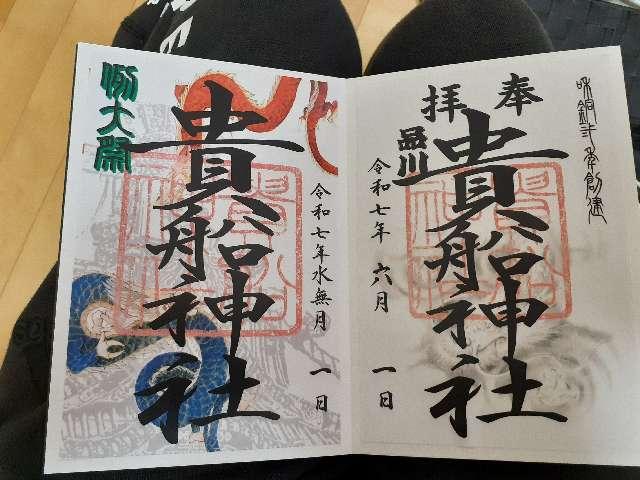 奉拝
和銅二年創建
品川
貴船神社
令和七年 六月 一日
例大祭
貴船神社
令和七年水無月 一日